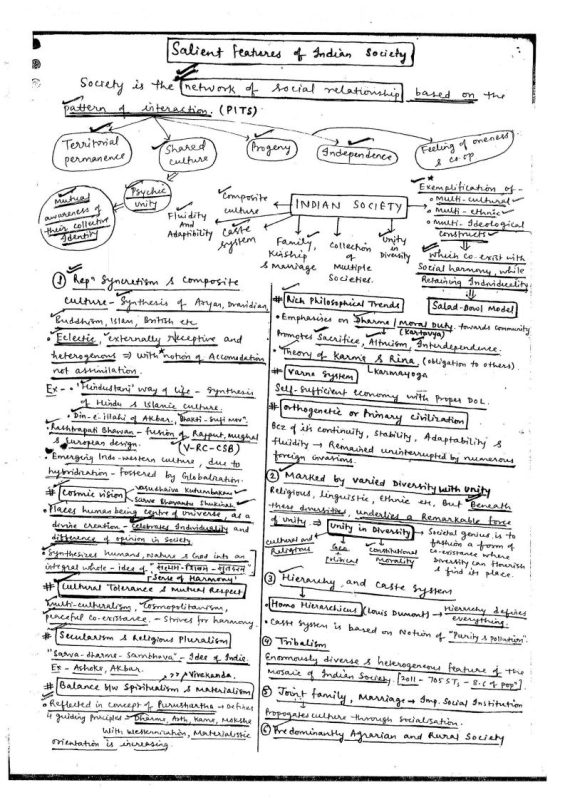 Salient Features of Indian Society
Society is the network of social relationship based on the
pattern of interaction. (PITS)
Territorial
permanence
Shared
culture
Progeny
Independence
Feeling of oneness
& co-op
Mutual
awareness of
their collective
Identity
Psychic
unity
Composite
culture
Fluidity
And
Adaptibility
Caste
System
INDIAN SOCIETY
Family,
Kinship
& Marriage
Collection
of
Multiple
Societies.
Unity
in
Diversity
* Exemplification of -
• multi-cultural
• multi-ethnic
• multi-Ideological
constructs
which co-exist with
Social harmony, while
Retaining Individuality
Salad-Bowl Model
① Repn Syncretism & Composite
Culture - Synthesis of Aryan, Dravidian,
Buddhism, Islam, British etc
• Eclectic, externally receptive and
heterogenous ⇒ with notion of Accomodation
not assimilation.
Ex - • "Hindustani" way of life - Synthesis
of Hindu & Islamic culture.
• Din-e-illahi of Akbar, Bhakti-Sufi movt.
• Rashtrapati Bhawan - fusion of Rajput, mughal
& European design. (V-RC-CSB)
• Emerging Indo-western culture, due to
hybridization - Fostered by Globalization.
# Cosmic vision
Vasudhaiva Kutumbakam
Sarve Bhavantu Sukhinah
• Places human being centre of universe, as a
divine creation - Celebrates Individuality and
difference of opinion in Society.
• Synthesizes humans, nature & God into an
integral whole - idea of "सत्यम-शिवम-सुंदरम"
'Sense of Harmony'
# Cultural Tolerance & mutual Respect
multi-culturalism, Cosmopolitanism,
peaceful co-existance. - Strives for harmony.
# Secularism & Religious Pluralism
"Sarva-dharma-Sambhava" - Idea of India.
Ex - Ashoka, Akbar.
,, Vivekanda.
# Balance b/w Spiritualism & Materialism
• Reflected in concept of Purushartha → Defines
4 guiding principles - Dharma, Arth, Kama, Moksha
With Westernisation, Materialistic
Orientation is increasing.
# Rich Philosophical Trends
• Emphasises on Dharma / Moral Duty towards Community
(Kartavya)
Promotes Sacrifice, Altruism, Interdependence.
• Theory of Karma & Rina (obligation to others)
# Varna System
Karmayoga
Self-Sufficient economy with Proper DOL.
# Orthogenetic or Primary civilization
Bcz of its continuity, Stability, Adaptability &
fluidity → Remained uninterrupted by numerous
foreign invasions.
② Marked by varied Diversity with Unity
Religious, linguistic, Ethnic etc, But Beneath
these diversities, underlies a Remarkable force
of unity ⇒ Unity in Diversity
Cultural and
Religious
Geo
Political
Constitutional
Morality
Societal genius is to
fashion a form of
co-existance where
Diversity can flourish
& find its place.
③ Hierarchy and Caste System
• Homo Hierarchicus (Louis Dumont) → Hierarchy defines
everything.
• Caste System is based on Notion of "Purity & Pollution".
④ Tribalism
Enormously diverse & heterogeneous feature of the
mosaic of Indian Society. [2011 - 705 STs - 8.6% of pop"]
⑤ Joint family, Marriage → Imp. Social Institution
Propogates culture through Socialisation.
⑥ Predominantly Agrarian and Rural Society